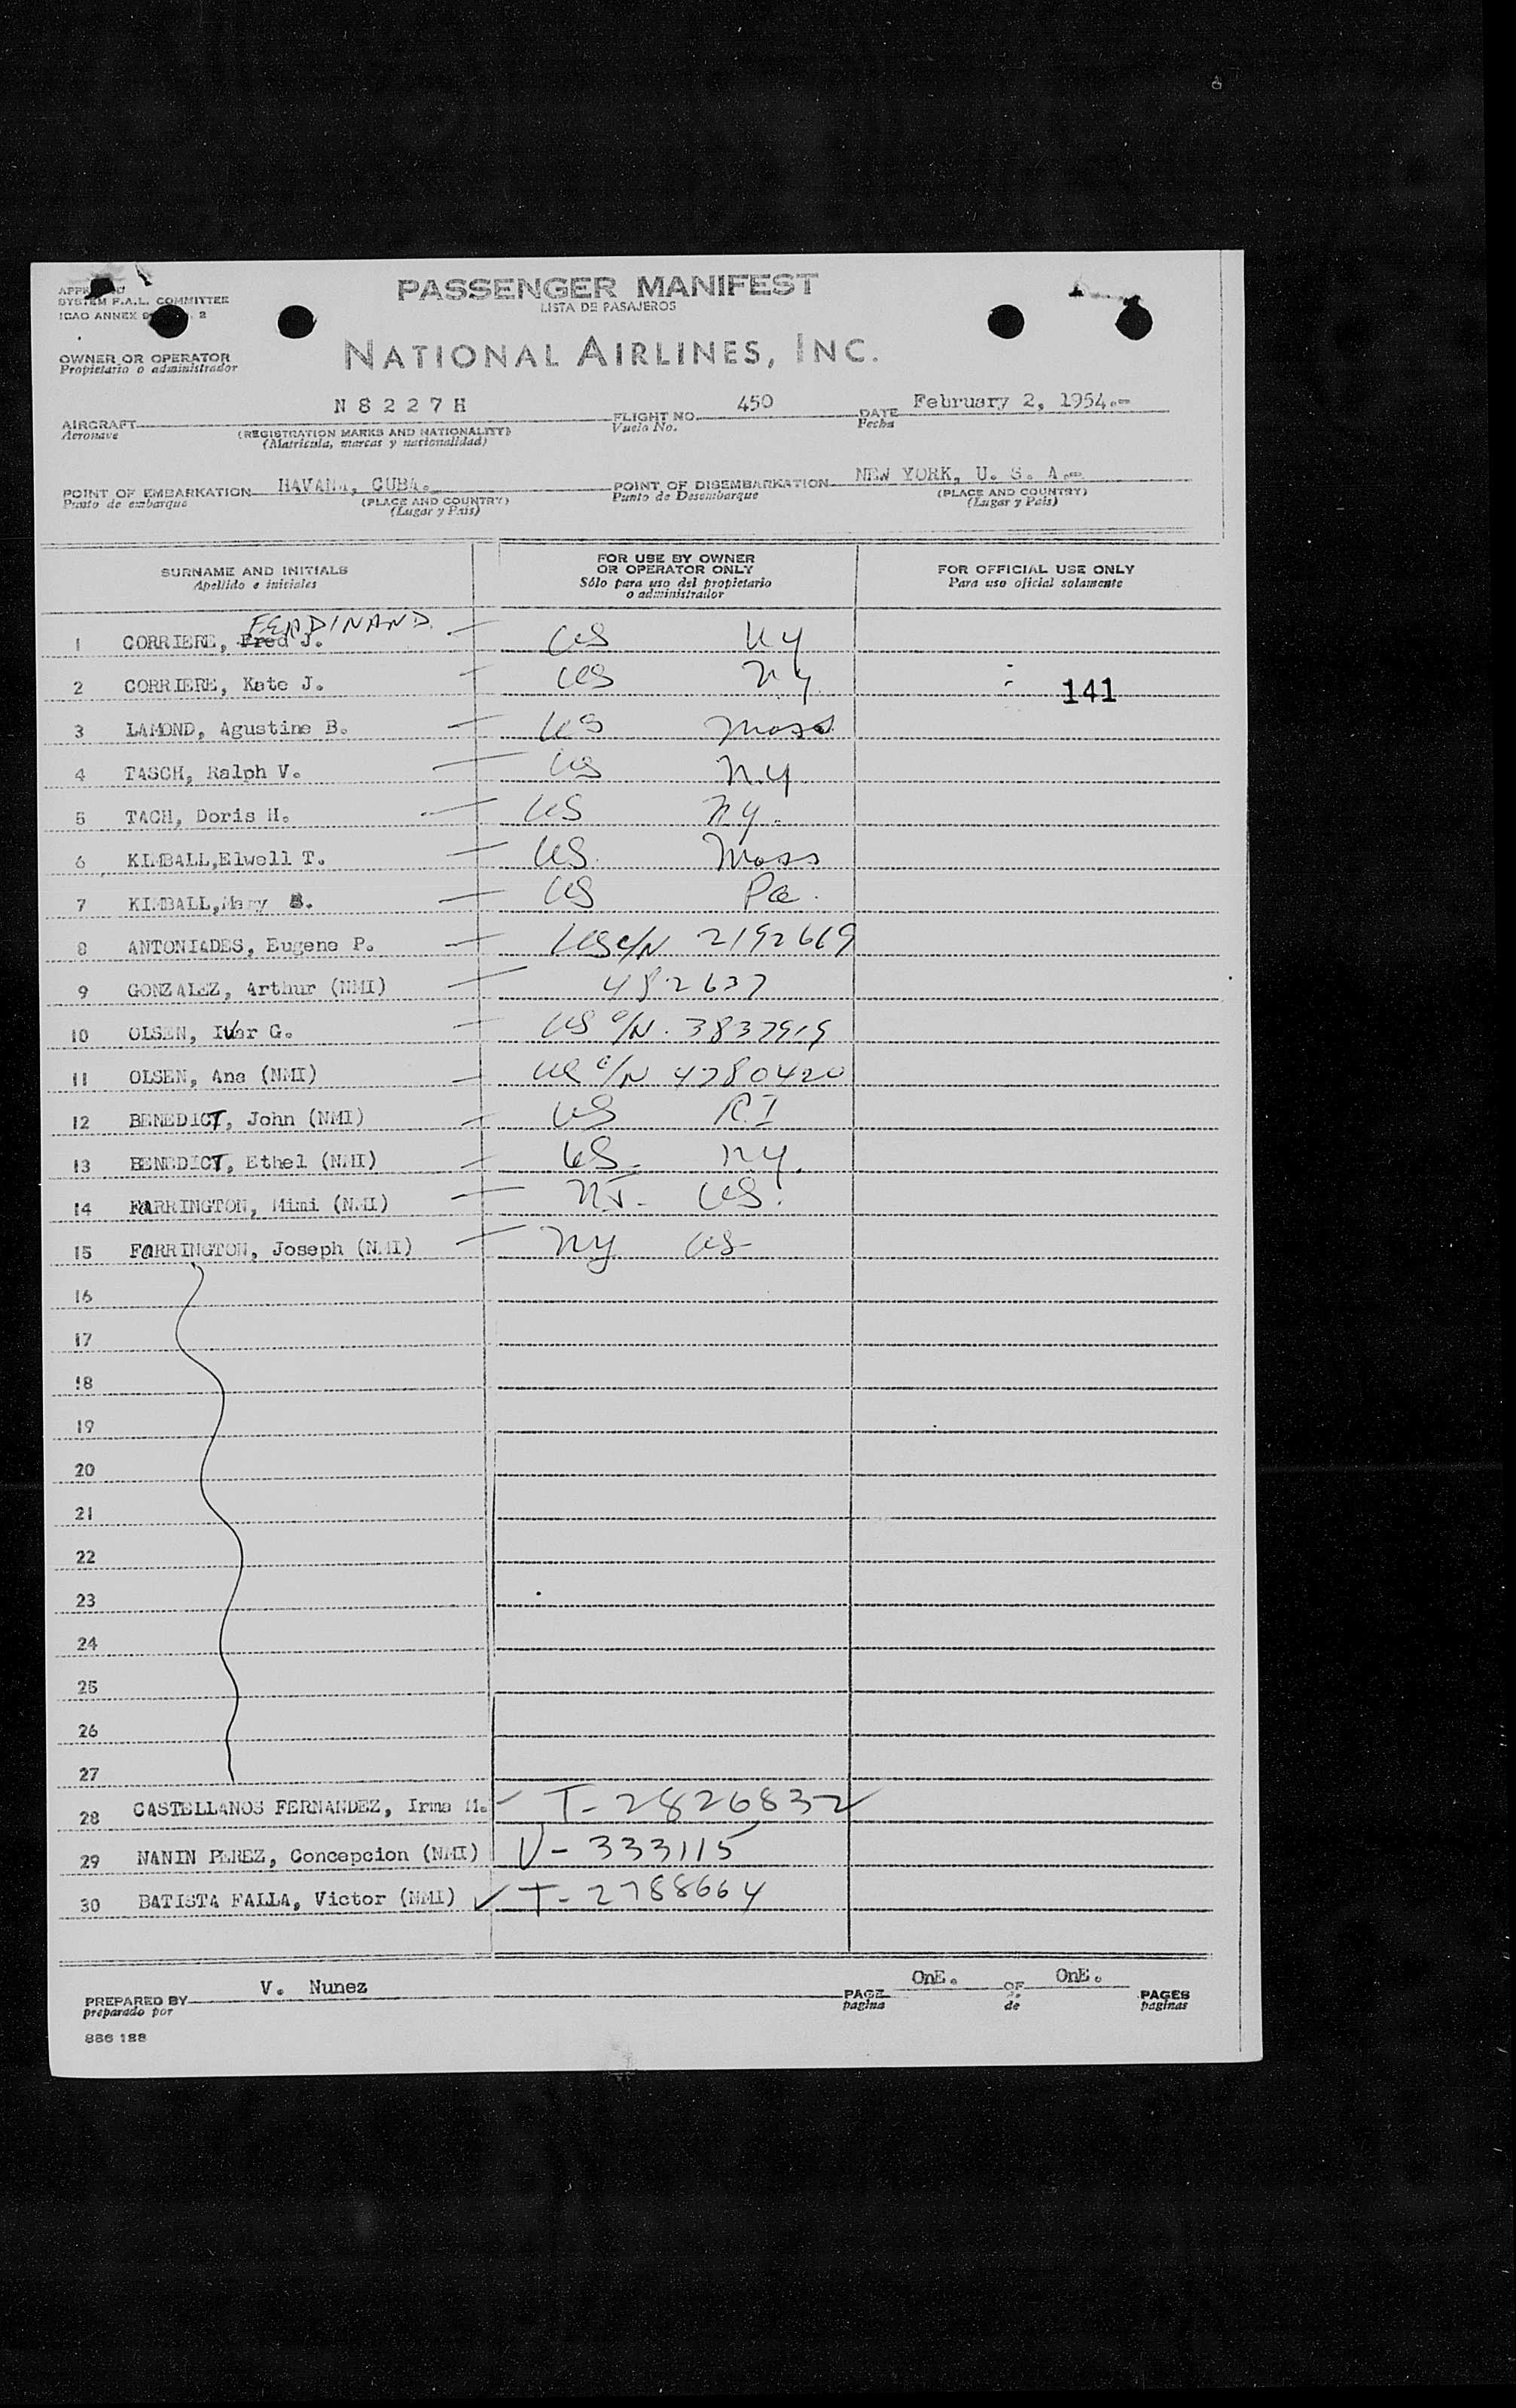 APPROVED
SYSTEM F.A.L. COMMITTEE
ICAO ANNEX 9 2
PASSENGER MANIFEST
LISTA DE PASAJEROS
OWNER OR OPERATOR
Propietario o administrador
NATIONAL AIRLINES, INC.
AIRCRAFT N 8 2 2 7 H FLIGHT NO. 450 DATE February 2, 1954.-
Aeronave (REGISTRATION MARKS AND NATIONALITY) Vuelo No. Fecha
(Matricula, marcas y nacionalidad)
POINT OF EMBARKATION HAVANA, CUBA. POINT OF DISEMBARKATION NEW YORK, U. S. A.-
Punto de embarque (PLACE AND COUNTRY) Punto de Desembarque (PLACE AND COUNTRY)
(Lugar y Pais) (Lugar y Pais)
SURNAME AND INITIALS
Apellido e iniciales
FOR USE BY OWNER
OR OPERATOR ONLY
Sólo para uso del propietario
o administrador
FOR OFFICIAL USE ONLY
Para uso oficial solamente
FERDINAND
1 CORRIERE, Fred J. US NY
2 CORRIERE, Kate J. US NY. 141
3 LAMOND, Agustine B. US Mass
4 TASCH, Ralph V. US N.Y.
5 TACH, Doris H. US NY.
6 KIMBALL,Elwell T. US. Mass
7 KIMBALL,Mary B. US Pa.
8 ANTONIADES, Eugene P. US c/N 2192669
9 GONZALEZ, Arthur (NMI) 482637
10 OLSEN, Ivar G. US c/N. 3837919
11 OLSEN, Ana (NMI) US c/N 4780420
12 BENEDICT, John (NMI) US R.I
13 BENEDICT, Ethel (NMI) US NY.
14 FARRINGTON, Mimi (NMI) NJ. US.
15 FARRINGTON, Joseph (NMI) NY US
16
17
18
19
20
21
22
23
24
25
26
27
28 CASTELLANOS FERNANDEZ, Irma M. T-2826832
29 NANIN PEREZ, Concepcion (NMI) V-333115
30 BATISTA FALLA, Victor (NMI) T-2788664
PREPARED BY V. Nunez PAGE OnE. OF OnE. PAGES
preparado por pagina de paginas
886 188